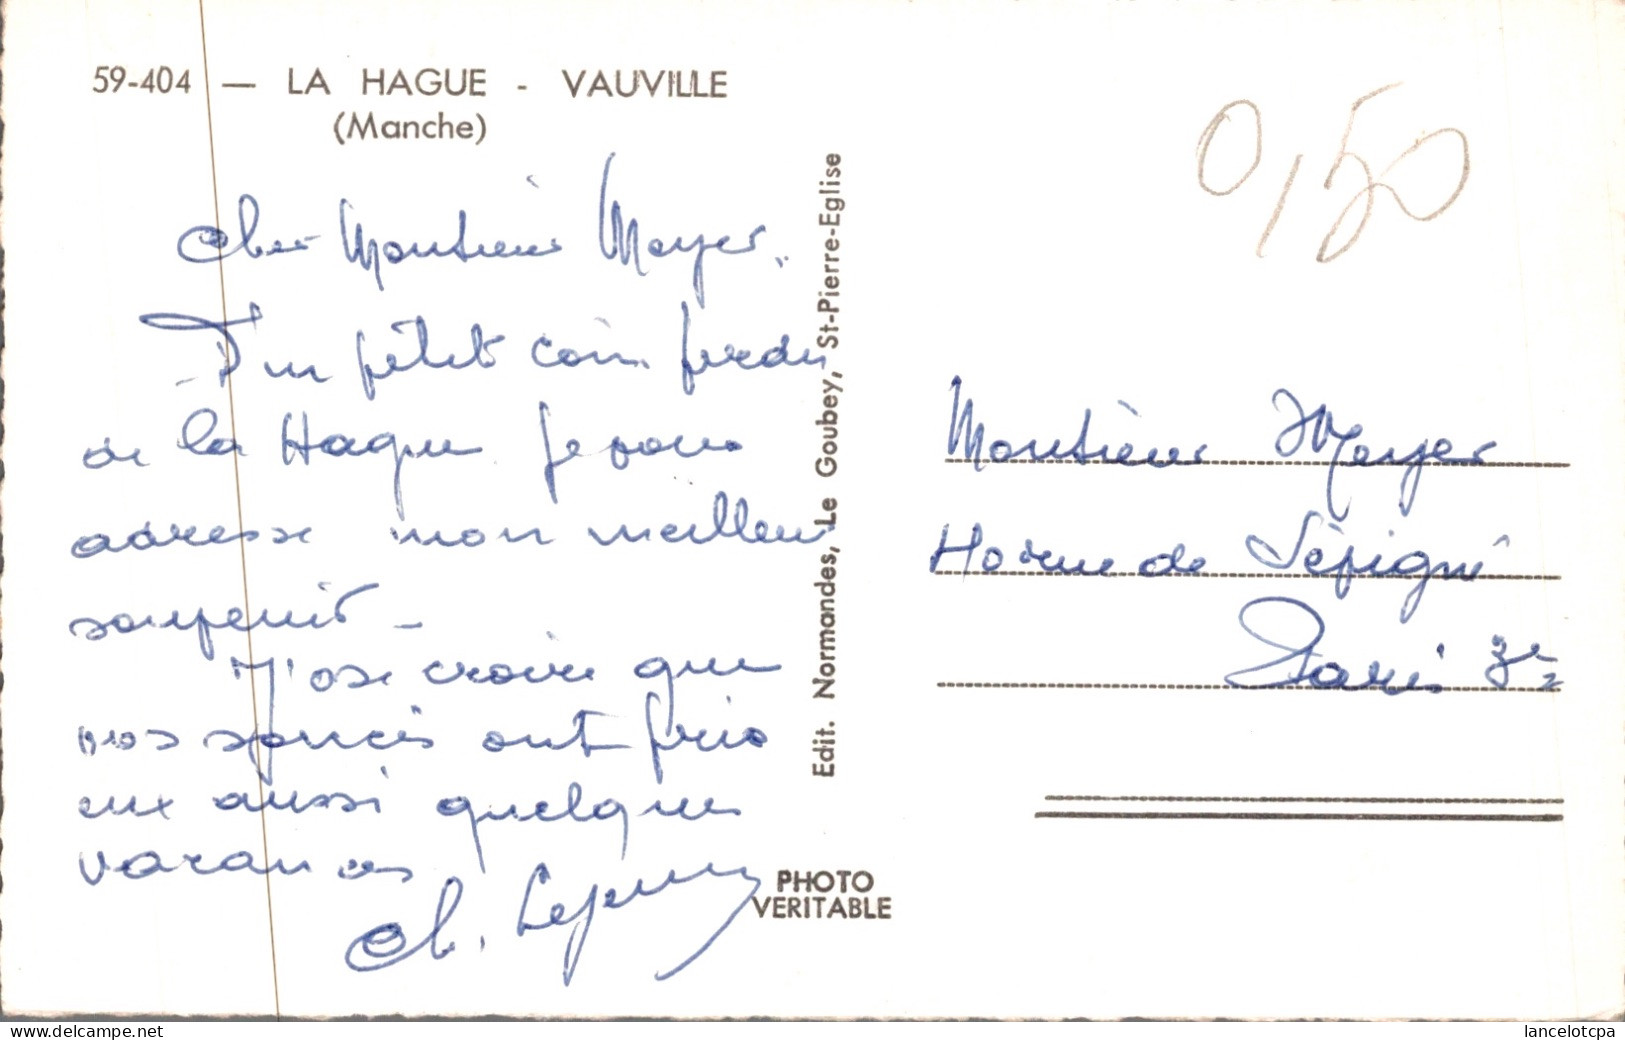 59-404 — LA HAGUE - VAUVILLE
(Manche)
Cher Monsieur Meyer.
D'un petit coin perdu
de la Hague je vous
adresse mon meilleur
souvenir -
J'ose croire que
vos soucis ont pris
eux aussi quelques
vacances
Ch.
Edit. Normandes, Le Goubey, St-Pierre-Eglise
PHOTO
VERITABLE
0,50
Monsieur Meyer
rue de Sévigné
Paris 3e
www.delcampe.net
lancelotcpa